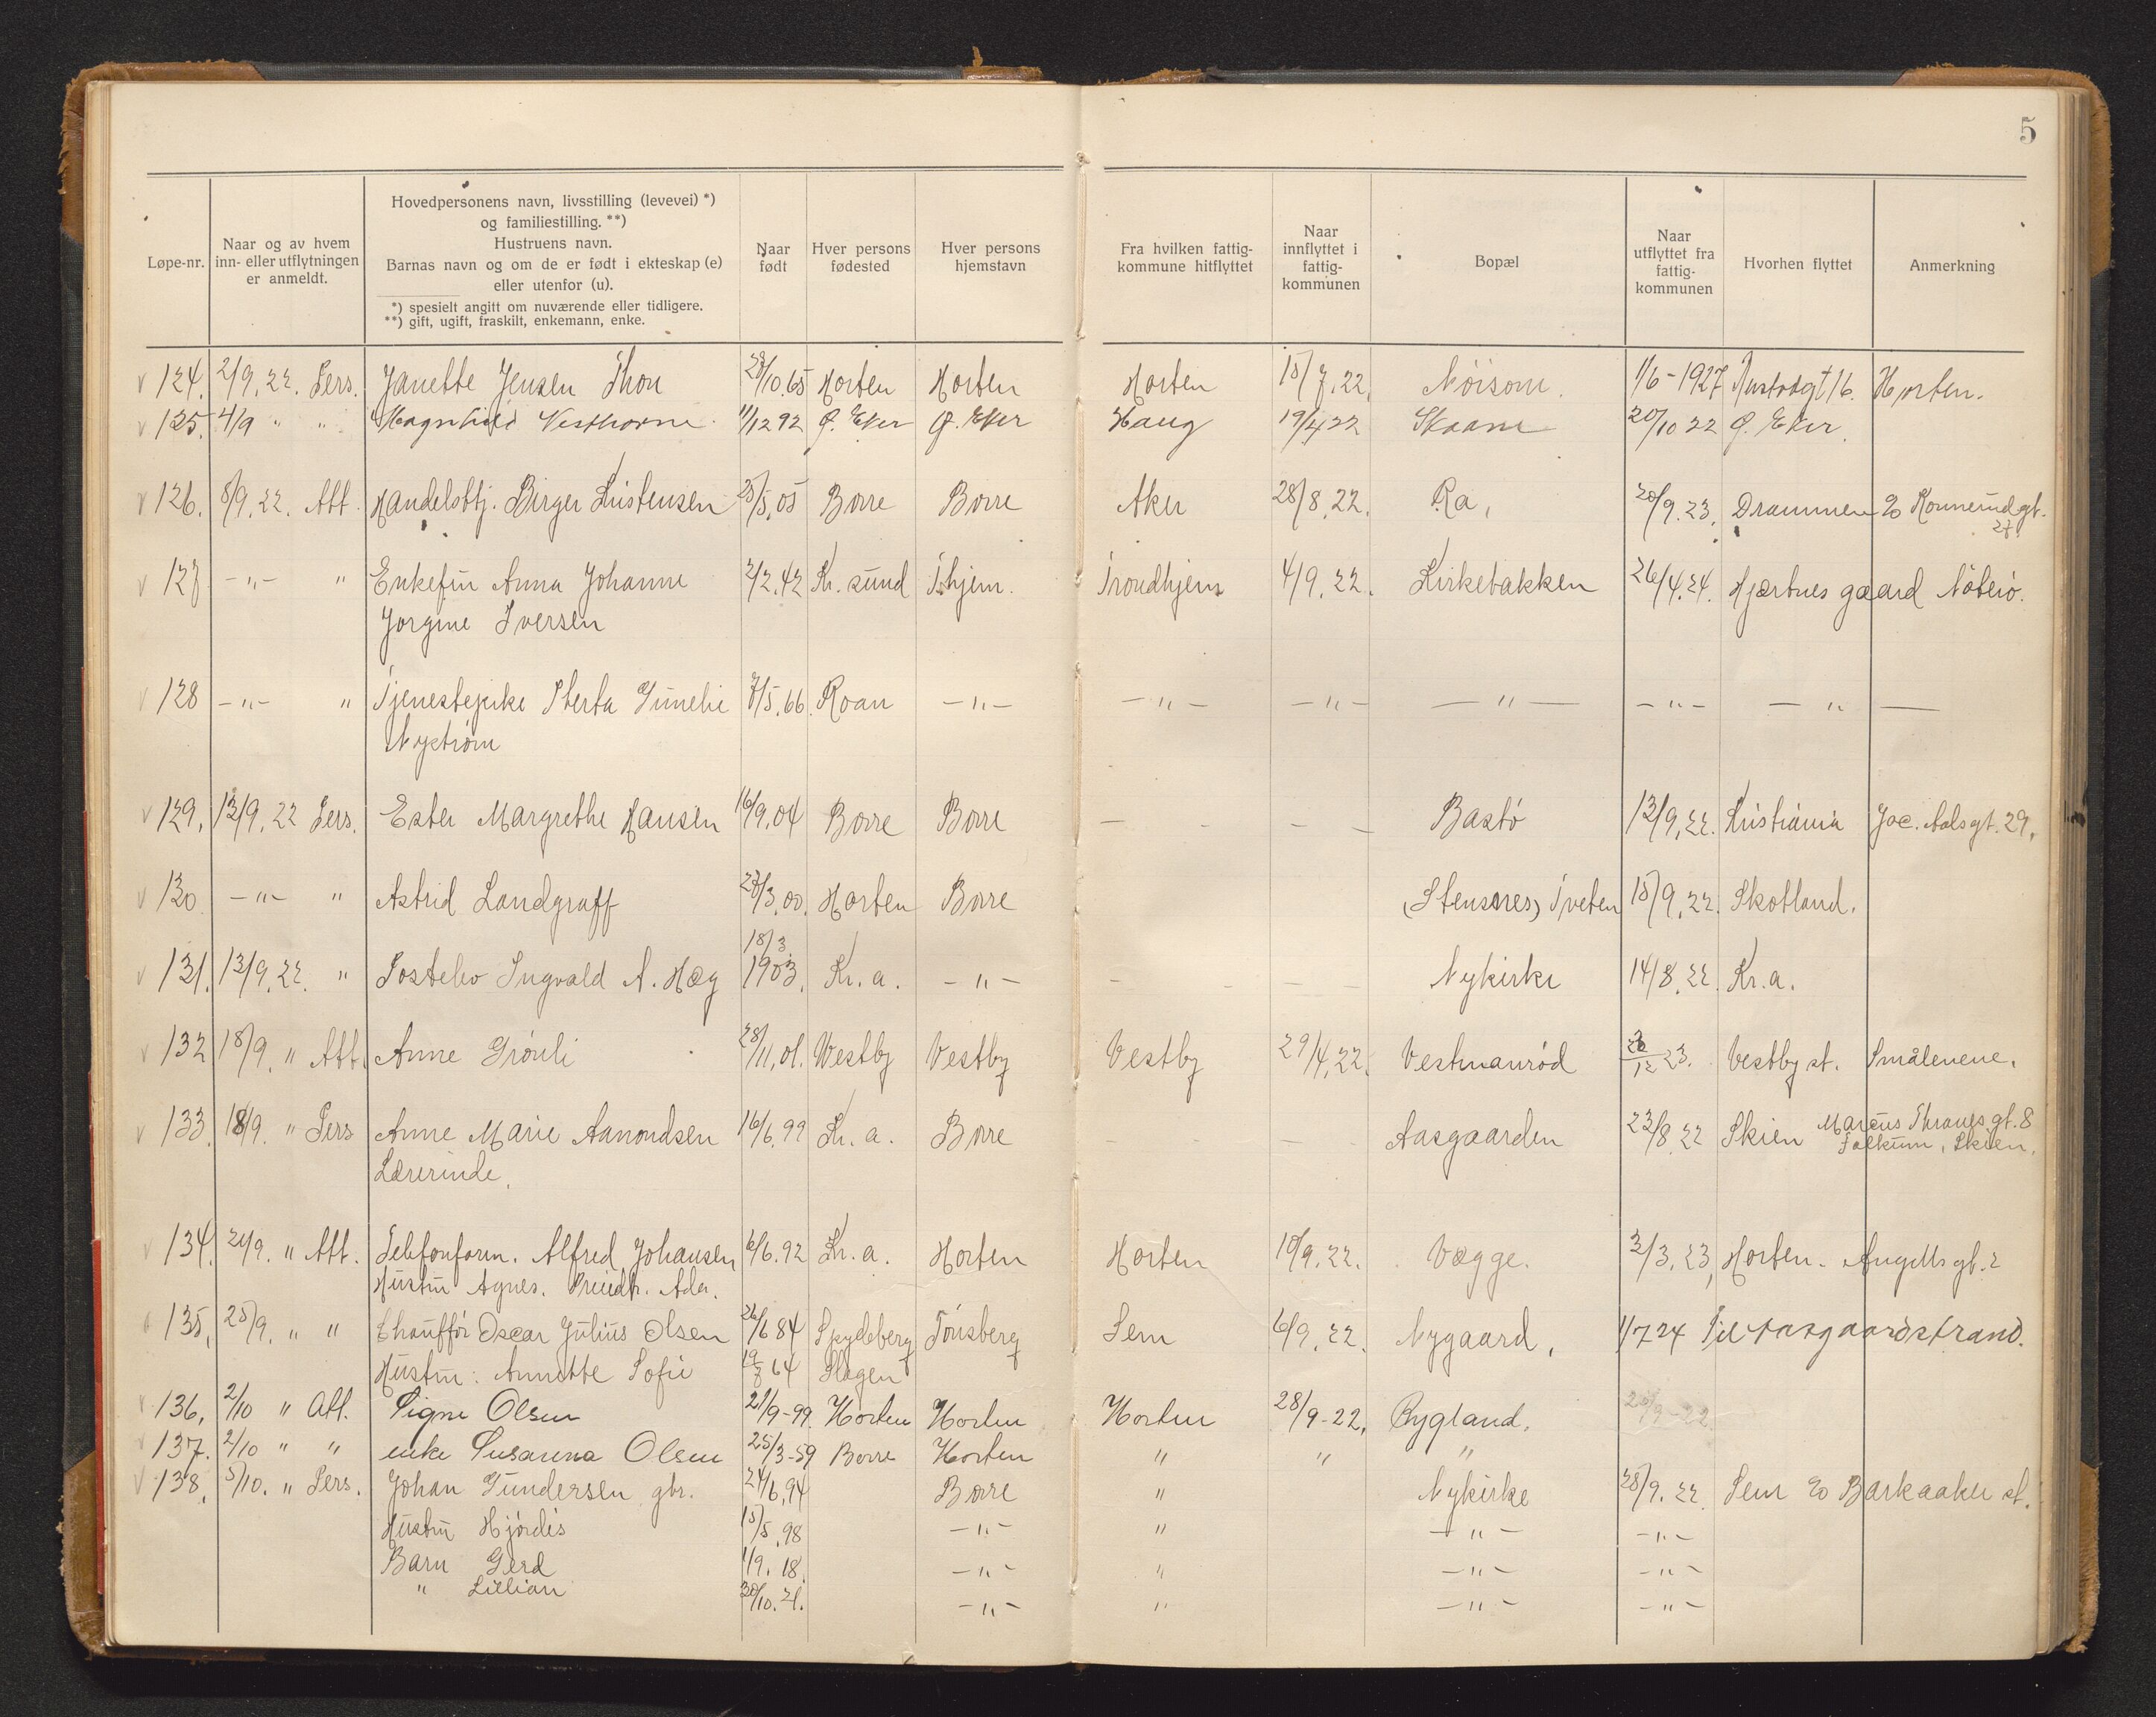 5
Løpe-nr. | Naar og av hvem inn- eller utflytningen er anmeldt. | Hovedpersonens navn, livsstilling (levevei) *) og familiestilling. **) Hustruens navn. Barnas navn og om de er født i ekteskap (e) eller utenfor (u). *) spesielt angitt om nuværende eller tidligere. **) gift, ugift, fraskilt, enkemann, enke. | Naar født | Hver persons fødested | Hver persons hjemstavn | Fra hvilken fattig-kommune hitflyttet | Naar innflyttet i fattig-kommunen | Bopæl | Naar utflyttet fra fattig-kommunen | Hvorhen flyttet | Anmerkning
124. 2/9. 22. Pers. Janette Jensen Thon 23/10.65 Horten Horten Horten 15/7.22. Nöisom. 1/6-1927 16. Horten.
125. 4/9 " " Magnhild Vesthorne 11/12 92 Ø. Eker Ø. Eker Haug 19/4 22 Skaane 20/10 22 Ø. Eker.
126. 8/9. 22. Att. Handelsbtj. Birger Kristensen 25/5.05 Borre Borre Aker 28/8.22. Ra, 20/9.23. Drammen Konnerudgt. 27.
127 -"- " Enkefru Anna Johanne 2/2.42 Kr. sund Thjem. Trondhjem 4/9.22. Kirkebakken 26/4.24. Hjærtnes gaard Nöterö.
Jorgine Iversen
128 -"- " Tjenestepike Gunelie 7/5.66. Roan -"- -"- -"- -"- -"- -"-
Nyström
129. 13/9. 22 Pers. Ester Margrethe Hansen 16/9.04 Borre Borre - - - - Bastö 13/9.22. Kristiania Jac. Aalsgt. 29.
130 -"- " Astrid Landgraff 27/3.00. Horten Borre (Stensnes) Tveten 15/9.22. Skotland.
18/3
131. 13/9.22. " Postelev Ingvald A. Hæg 1903. Kr. a. -"- - - - - Nykirke 14/8.22. Kr. a.
132 18/9. " Att. Anne Grönli 28/11.01. Vestby Vestby Vestby 29/4.22. Vestmanröd 12 23. Vestby st. Smålenene.
133. 18/9. " Pers Anne Marie Aamondsen 16/6.99 Kr. a. Borre - - - Aasgaarden 23/8.22 Skien Marcus Thranes gt. 8
Lærerinde. Falkum, Skien.
134. 21/9. " Att. Telefonform. Alfred Johansen 6/6.92 Kr. a. Horten Horten 19/9.22. Vægge. 3/3.23, Horten. Angells gt. 2
Hustru Agnes. Ada.
135. 25/9. " " Chaufför Oscar Julius Olsen 26/6 84 Skydeberg Tönsberg Sem 6/9.22. Nygaard, 1/7 24 Til Aasgaardstrand.
Hustru: Annette Sofie 64 Slagen
136. 2/10 " Att. Signe Olsen 21/9-99. Horten Horten Horten 28/9-22. Rygland. 28/9-22.
137. 2/10 " " enke Susanna Olsen 25/3-59 Borre Horten " " "
138. 5/10. " Pers. Johan Gundersen gbr. 24/6.94 Borre " Nykirke 28/9.22. Sem Barkaaker st.
Hustru Hjördis 15/5.98 -"- " -"- -"-
Barn Gerd 1/9.18. -"- " -"- -"-
" Lillian 30/10.21. -"- " -"- -"-